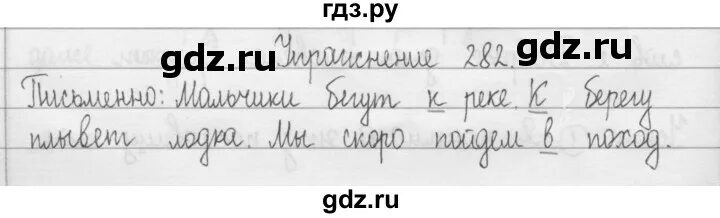 гдз.ру
gdz.ru gdz.ru
Упражнение 282.
Письменно: Мальчики бегут к реке. К берегу
плывет лодка. Мы скоро пойдем в поход.
gdz.ru gdz.ru